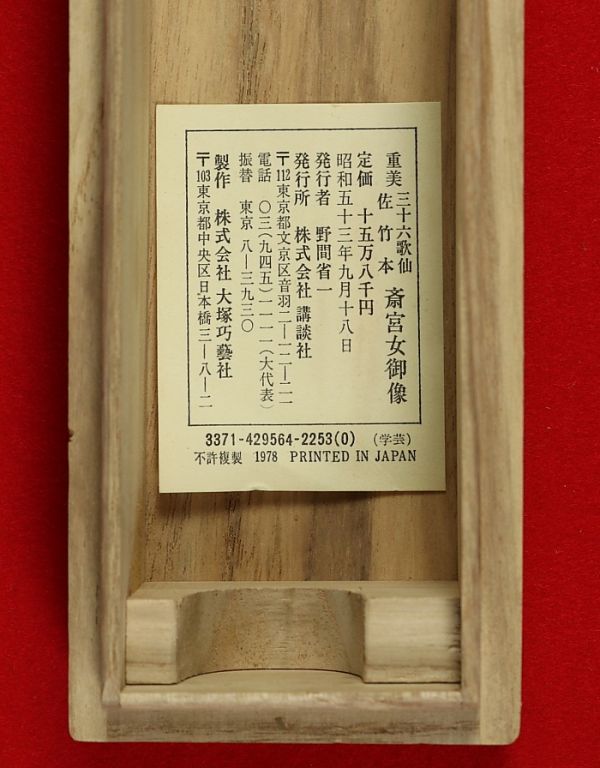 重美 三十六歌仙 佐竹本 斎宮女御像
定価 十五万八千円
昭和五十三年九月十八日
発行者 野間省一
発行所 株式会社 講談社
〒112東京都文京区音羽二—一二—二一
電話 〇三(九四五)一一一一(大代表)
振替 東京 八—三九三〇
製作 株式会社 大塚巧藝社
〒103東京都中央区日本橋三—八—二
3371-429564-2253(0) (学芸)
不許複製 1978 PRINTED IN JAPAN